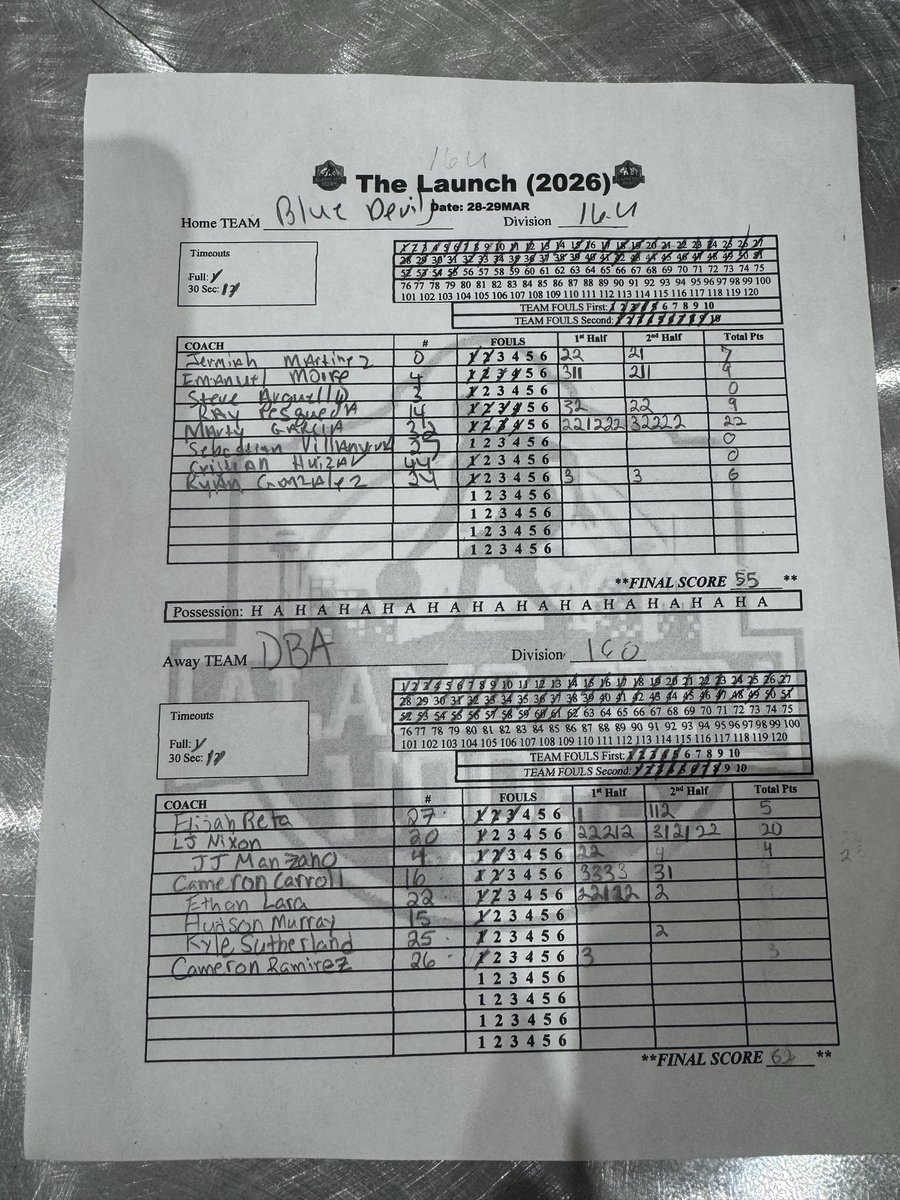 16U
The Launch (2026)
Date: 28-29MAR
Home TEAM Blue Devils Division 16U
Timeouts
Full: 1
30 Sec: 12
1 2 3 4 5 6 7 8 9 10 11 12 13 14 15 16 17 18 19 20 21 22 23 24 25 26 27
28 29 30 31 32 33 34 35 36 37 38 39 40 41 42 43 44 45 46 47 48 49 50 51
52 53 54 55 56 57 58 59 60 61 62 63 64 65 66 67 68 69 70 71 72 73 74 75
76 77 78 79 80 81 82 83 84 85 86 87 88 89 90 91 92 93 94 95 96 97 98 99 100
101 102 103 104 105 106 107 108 109 110 111 112 113 114 115 116 117 118 119 120
TEAM FOULS First: 1 2 3 4 5 6 7 8 9 10
TEAM FOULS Second: 1 2 3 4 5 6 7 8 9 10
COACH # FOULS 1st Half 2nd Half Total Pts
Jermiah Martinez 0 1 2 3 4 5 6 22 21 7
Emanuel 4 1 2 3 4 5 6 311 211 9
Steve Arguello 3 1 2 3 4 5 6 0
Ray Pesqueda 14 1 2 3 4 5 6 32 22 9
Marty Garcia 32 1 2 3 4 5 6 221222 32222 22
Sebastian 1 2 3 4 5 6 0
Cristian Huizar 44 1 2 3 4 5 6 0
Ryan Gonzalez 24 1 2 3 4 5 6 3 3 6
1 2 3 4 5 6
1 2 3 4 5 6
1 2 3 4 5 6
1 2 3 4 5 6
**FINAL SCORE 55 **
Possession: H A H A H A H A H A H A H A H A H A H A H A H A
Away TEAM DBA Division
Timeouts
Full: 1
30 Sec: 12
1 2 3 4 5 6 7 8 9 10 11 12 13 14 15 16 17 18 19 20 21 22 23 24 25 26 27
28 29 30 31 32 33 34 35 36 37 38 39 40 41 42 43 44 45 46 47 48 49 50 51
52 53 54 55 56 57 58 59 60 61 62 63 64 65 66 67 68 69 70 71 72 73 74 75
76 77 78 79 80 81 82 83 84 85 86 87 88 89 90 91 92 93 94 95 96 97 98 99 100
101 102 103 104 105 106 107 108 109 110 111 112 113 114 115 116 117 118 119 120
TEAM FOULS First: 1 2 3 4 5 6 7 8 9 10
TEAM FOULS Second: 1 2 3 4 5 6 7 8 9 10
COACH # FOULS 1st Half 2nd Half Total Pts
Elijah Beta 27 1 2 3 4 5 6 1 112 5
LJ Nixon 20 1 2 3 4 5 6 22212 312122 20
JJ Manzano 4 1 2 3 4 5 6 22 4
Cameron Carroll 16 1 2 3 4 5 6 3333 31
Ethan Lara 22 1 2 3 4 5 6 22122 2
Hudson Murray 15 1 2 3 4 5 6
Kyle Sutherland 25 1 2 3 4 5 6 2
Cameron Ramirez 26 1 2 3 4 5 6 3 3
1 2 3 4 5 6
1 2 3 4 5 6
1 2 3 4 5 6
1 2 3 4 5 6
**FINAL SCORE 62 **